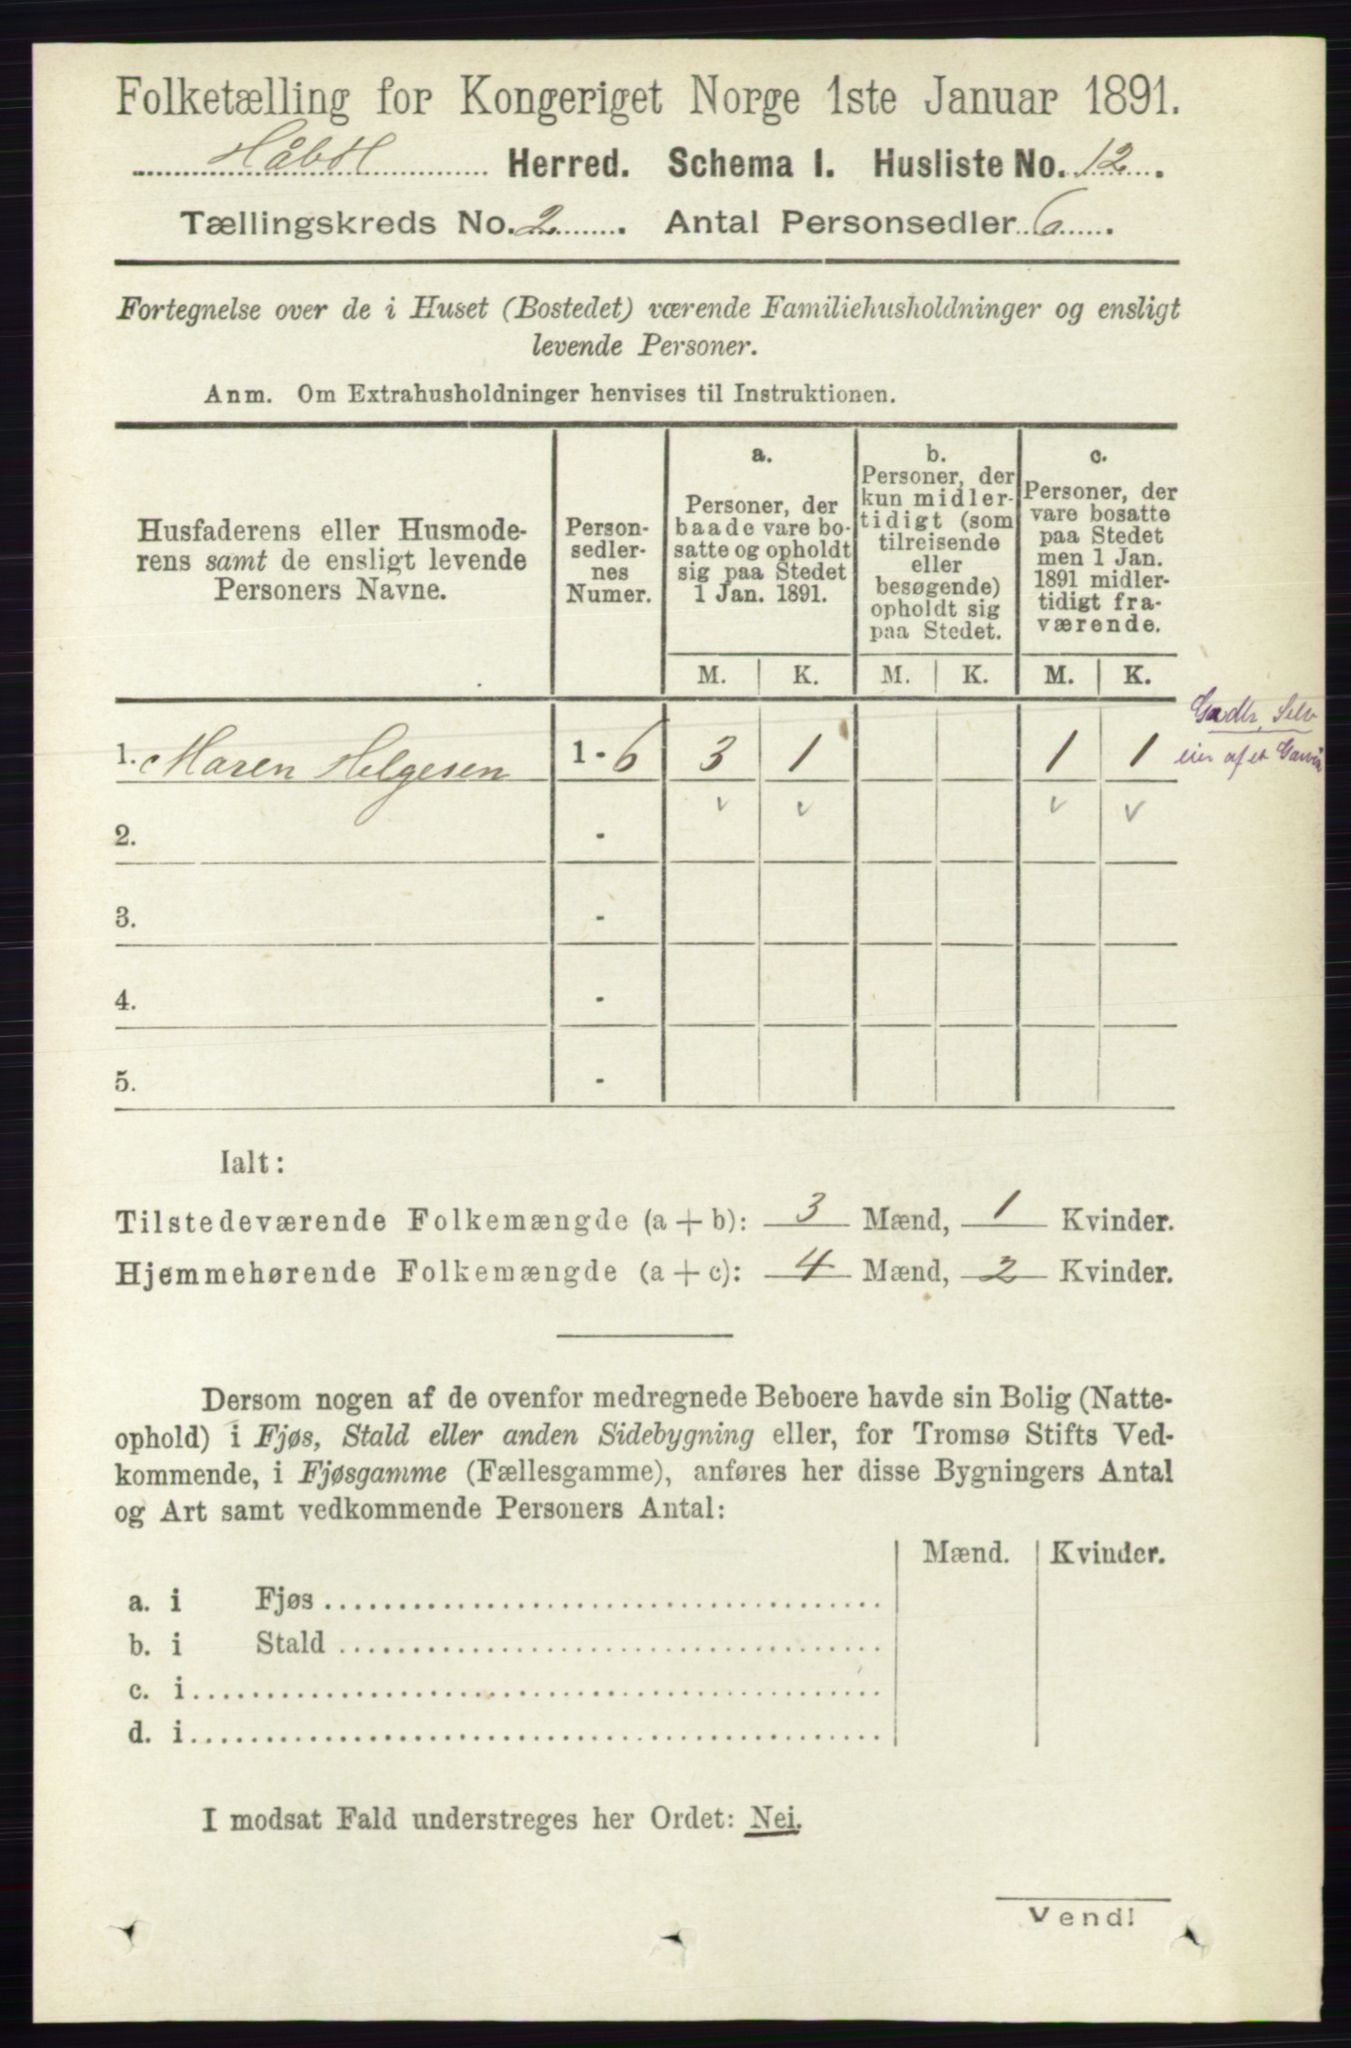 Folketælling for Kongeriget Norge 1ste Januar 1891.
Håbøl Herred. Schema I. Husliste No. 12.
Tællingskreds No. 2. Antal Personsedler 6.
Fortegnelse over de i Huset (Bostedet) værende Familiehusholdninger og ensligt
levende Personer.
Anm. Om Extrahusholdninger henvises til Instruktionen.
Husfaderens eller Husmode-
rens samt de ensligt levende
Personers Navne.
Person-
sedler-
nes
Numer.
a.
Personer, der
baade vare bo-
satte og opholdt
sig paa Stedet
1 Jan. 1891.
b.
Personer, der
kun midler-
tidigt (som
tilreisende
eller
besøgende)
opholdt sig
paa Stedet.
c.
Personer, der
vare bosatte
paa Stedet
men 1 Jan.
1891 midler-
tidigt fra-
værende.
M. K. M. K. M. K.
1. Maren Helgesen 1 - 6 3 1 1 1
Selv
eier af et
v v v v
2. -
3. -
4. -
5. -
Ialt:
Tilstedeværende Folkemængde (a + b): 3 Mænd, 1 Kvinder.
Hjemmehørende Folkemængde (a + c): 4 Mænd, 2 Kvinder.
Dersom nogen af de ovenfor medregnede Beboere havde sin Bolig (Natte-
ophold) i Fjøs, Stald eller anden Sidebygning eller, for Tromsø Stifts Ved-
kommende, i Fjøsgamme (Fællesgamme), anføres her disse Bygningers Antal
og Art samt vedkommende Personers Antal:
Mænd. Kvinder.
a. i Fjøs
b. i Stald
c. i
d. i
I modsat Fald understreges her Ordet: Nei.
Vend!